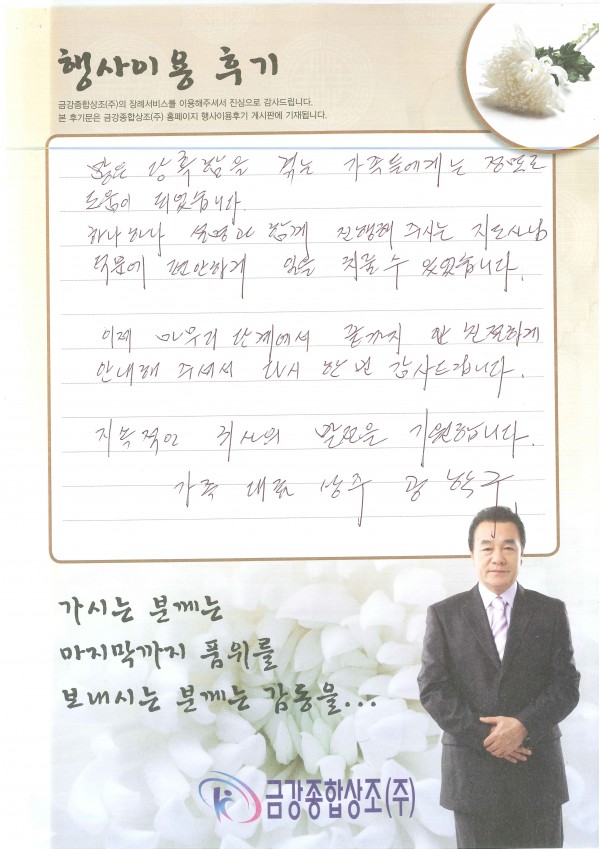 행사이용 후기
금강종합상조(주)의 장례서비스를 이용해주셔서 진심으로 감사드립니다.
본 후기문은 금강종합상조(주) 홈페이지 행사이용후기 게시판에 기재됩니다.
많은 황록함을 겪는 가족들에게는 정말로
도움이 되었습니다.
하나하나 설명과 함께 진행해 주시는 지도사님
덕문에 편안하게 일을 치룰 수 있었습니다.
이제 마무리 단계에서 끝까지 친절하게
안내해 주셔서 다시 한번 감사드립니다.
지속적인 귀사의 발전을 기원합니다.
가족 대표 상주
가시는 분께는
마지막까지 품위를
보내시는 분께는 감동을...
금강종합상조(주)